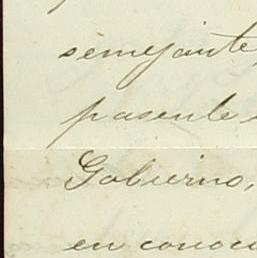 semejante
pasente
Gobierno,
en conoci